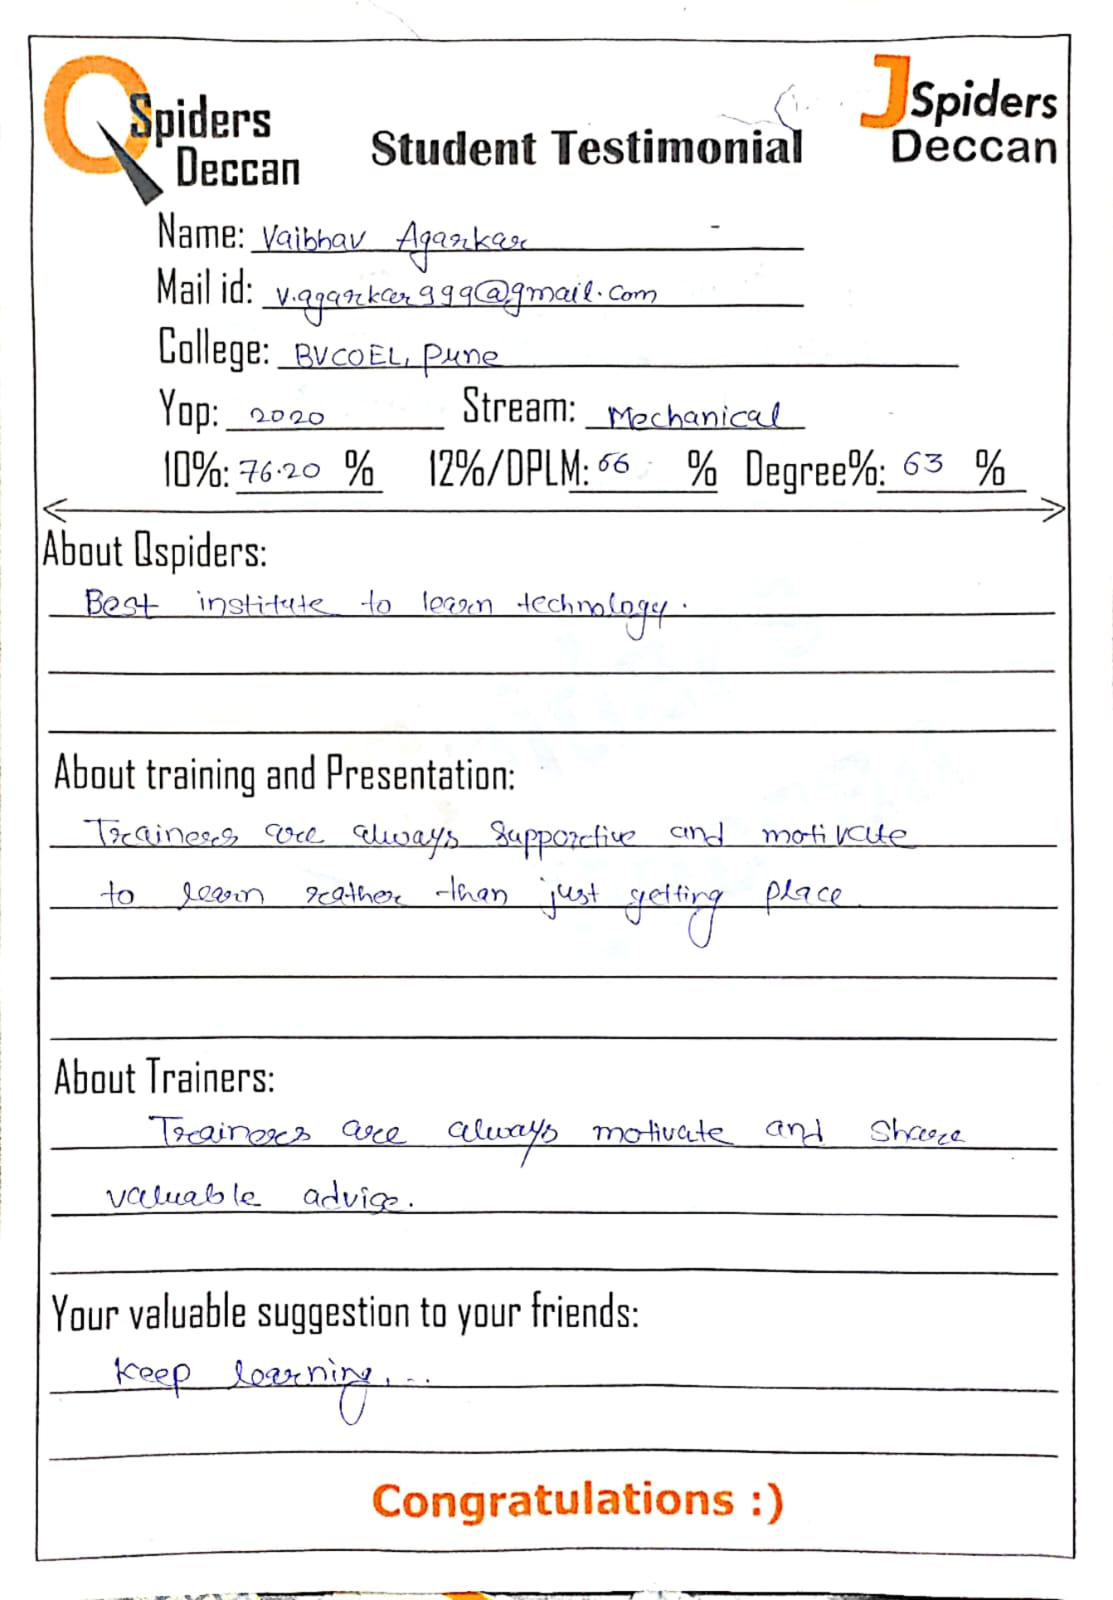 QSpiders
Deccan
Student Testimonial
JSpiders
Deccan
Name: Vaibhav Agarkar
Mail id: v.agarkar999@gmail.com
College: BVCOEL, Pune
Yop: 2020 Stream: Mechanical
10%: 76.20 % 12%/DPLM: 66 % Degree%: 63 %
About Qspiders:
Best institute to learn technology.
About training and Presentation:
Trainers are always supportive and motivate
to learn rather than just getting place
About Trainers:
Trainers are always motivate and share
valuable advise.
Your valuable suggestion to your friends:
Keep learning....
Congratulations :)